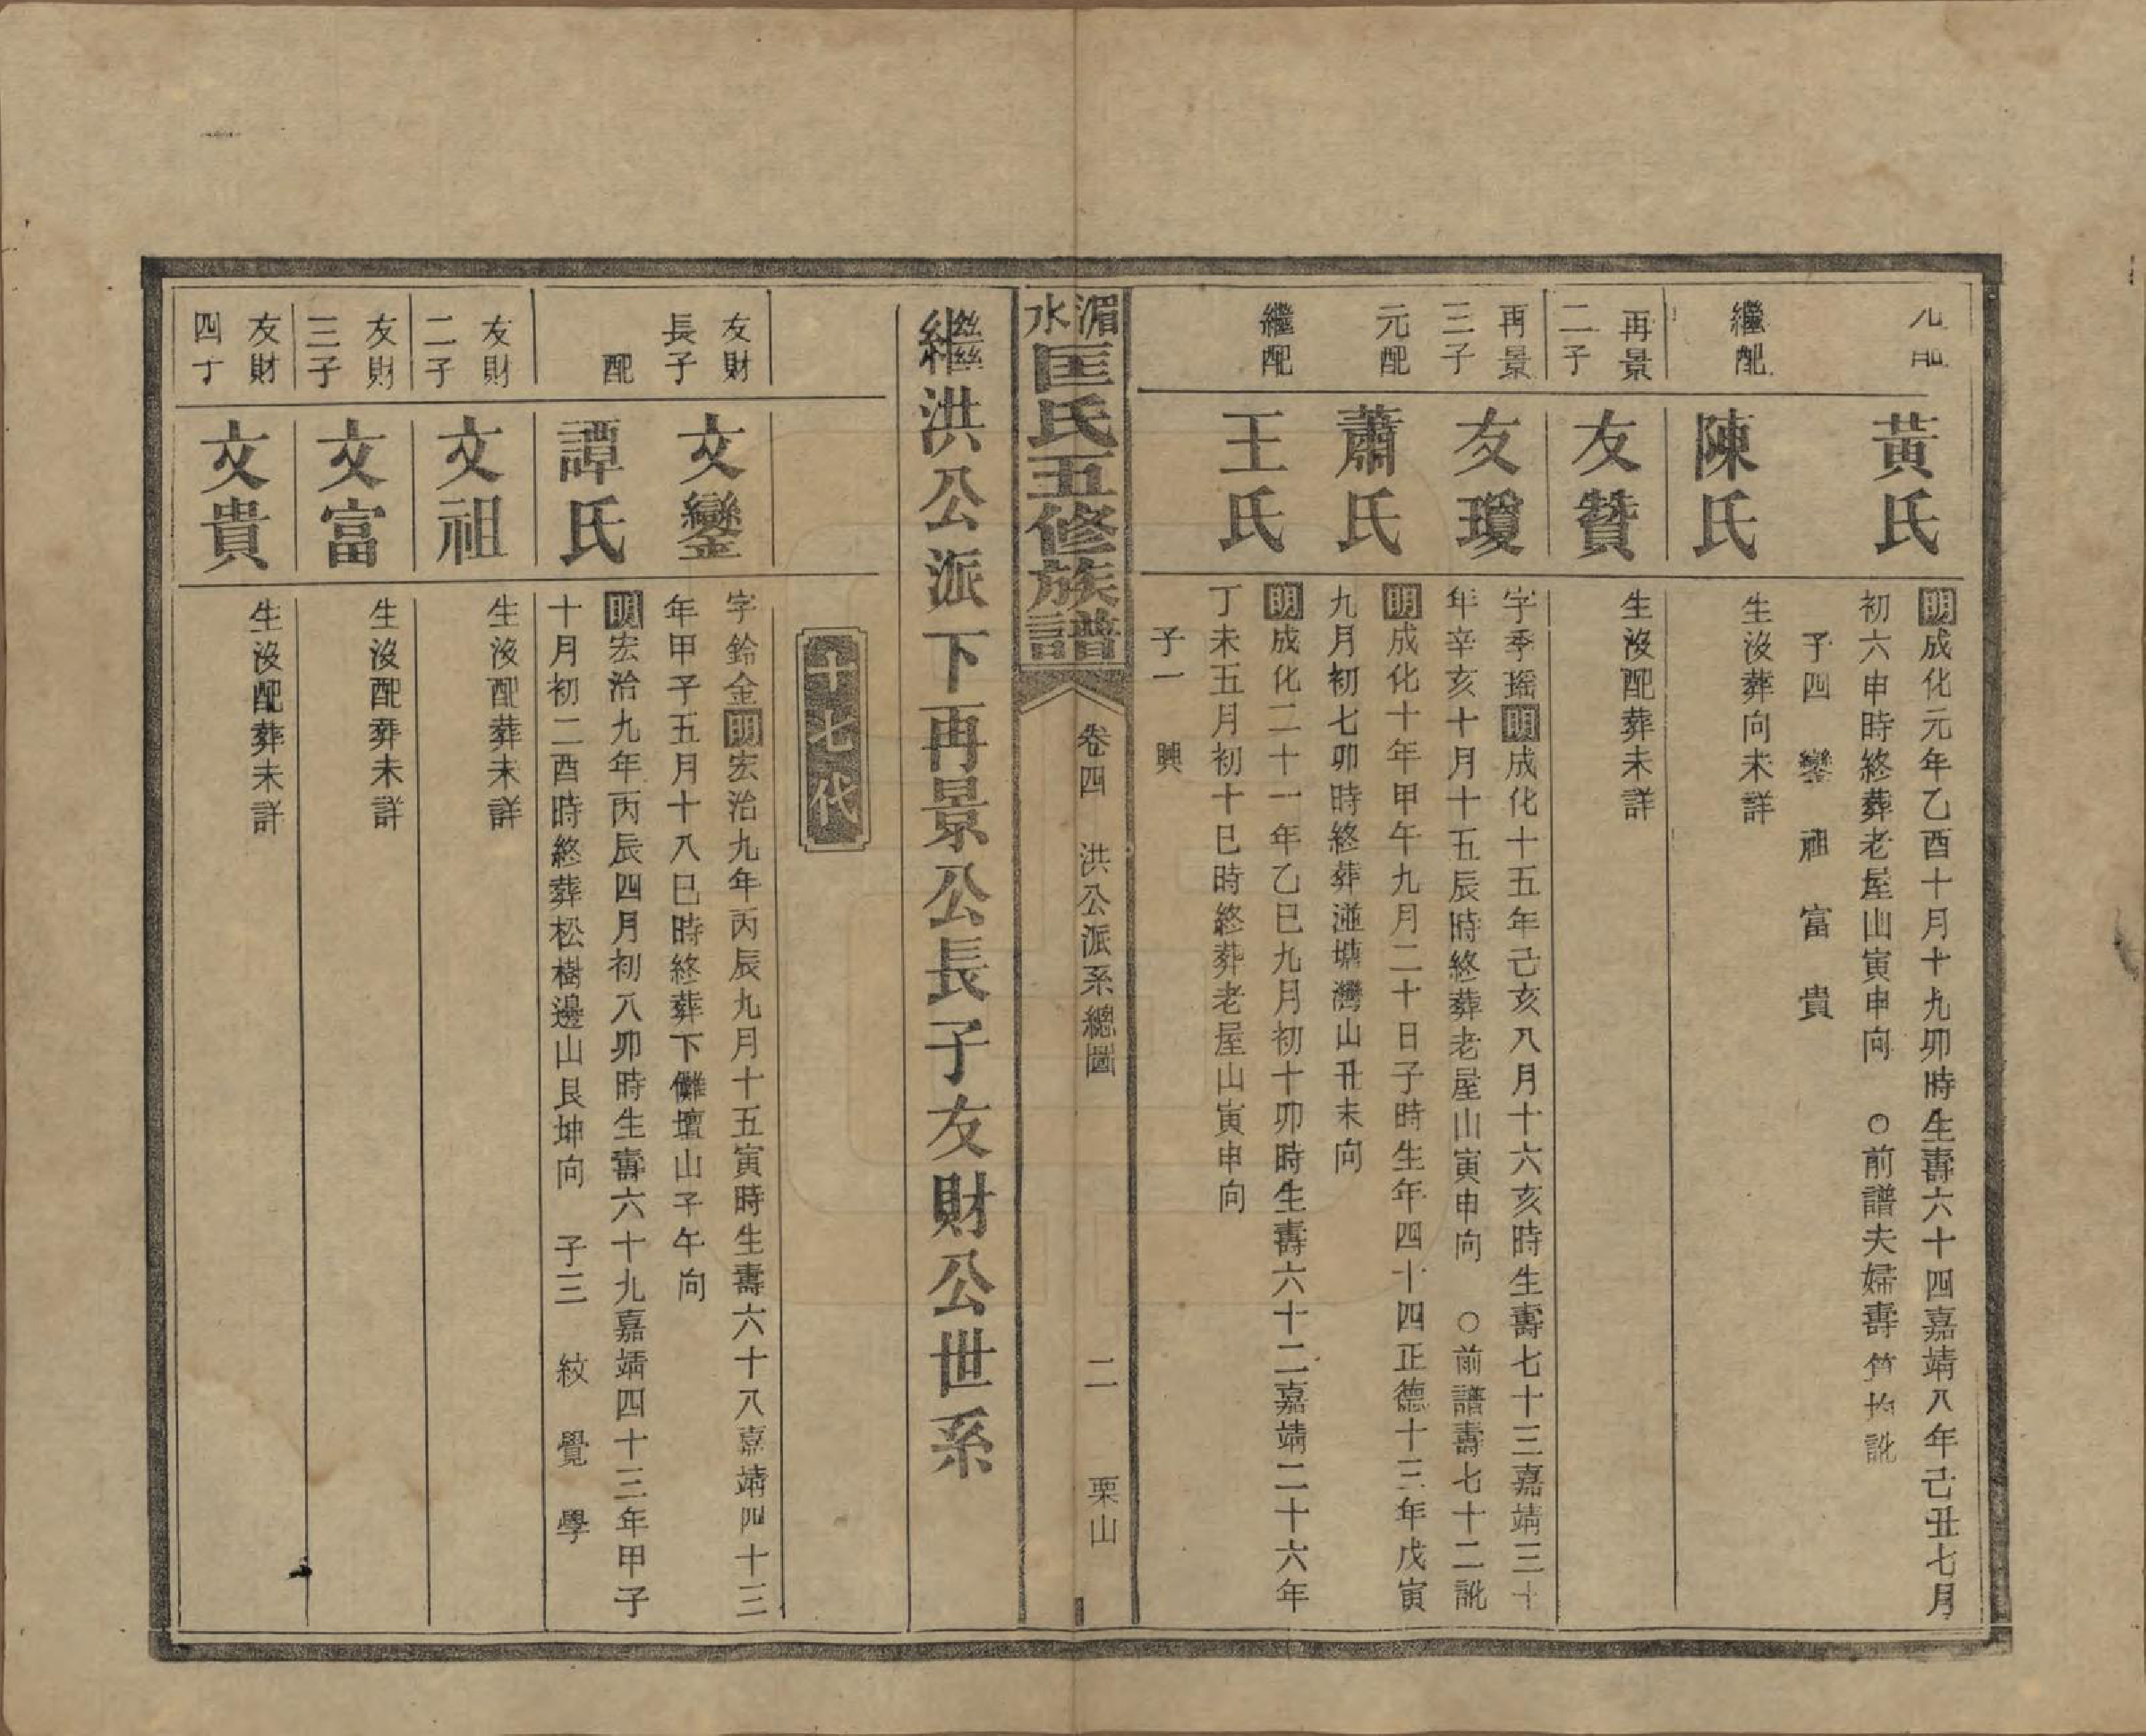 元配
黃氏
明成化元年乙酉十月十九卯時生壽六十四嘉靖八年己丑七月
初六申時終葬老屋山寅申向　○前譜夫婦壽筭均訛
子四　鑾　祖　富　貴
繼配
陳氏
生沒葬向未詳
再景
二子
友贊
生沒配葬未詳
再景
三子
友瓊
字季瑤明成化十五年己亥八月十六亥時生壽七十三嘉靖三十
年辛亥十月十五辰時終葬老屋山寅申向　○前譜壽七十二訛
元配
蕭氏
明成化十年甲午九月二十日子時生年四十四正德十三年戊寅
九月初七卯時終葬塘灣山丑未向
繼配
王氏
明成化二十一年乙巳九月初十卯時生壽六十二嘉靖二十六年
丁未五月初十巳時終葬老屋山寅申向
子一　興
湄水匡氏五修族譜
卷四　洪公派系總圖
二　栗山
繼洪公派下再景公長子友財公世系
十七代
友財
長子
文鑾
字鈴金明宏治九年丙辰九月十五寅時生壽六十八嘉靖四十三
年甲子五月十八巳時終葬下儺壇山子午向
配
譚氏
明宏治九年丙辰四月初八卯時生壽六十九嘉靖四十三年甲子
十月初二酉時終葬松樹邊山艮坤向　子三　紋　覺　學
友財
二子
文祖
生沒配葬未詳
友財
三子
文富
生沒配葬未詳
友財
四子
文貴
生沒配葬未詳